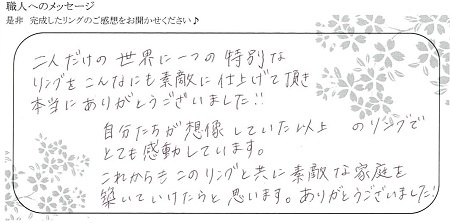 職人へのメッセージ
是非 完成したリングのご感想をお聞かせください♪
二人だけの世界に一つの特別な
リングをこんなにも素敵に仕上げて頂き
本当にありがとうございました!!
自分たちが想像していた以上 のリングで
とても感動しています。
これからもこのリングと共に素敵な家庭を
築いていけたらと思います。ありがとうございました!